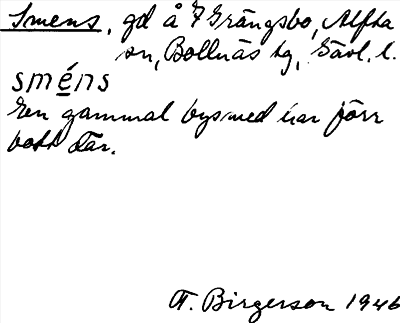 Smens, gd å 7 Grängsbo, Alfta
sn, Bollnäs tg, Gävl. l.
sméns
En gammal bysmed har förr
bott där.
A. Birgerson 1946